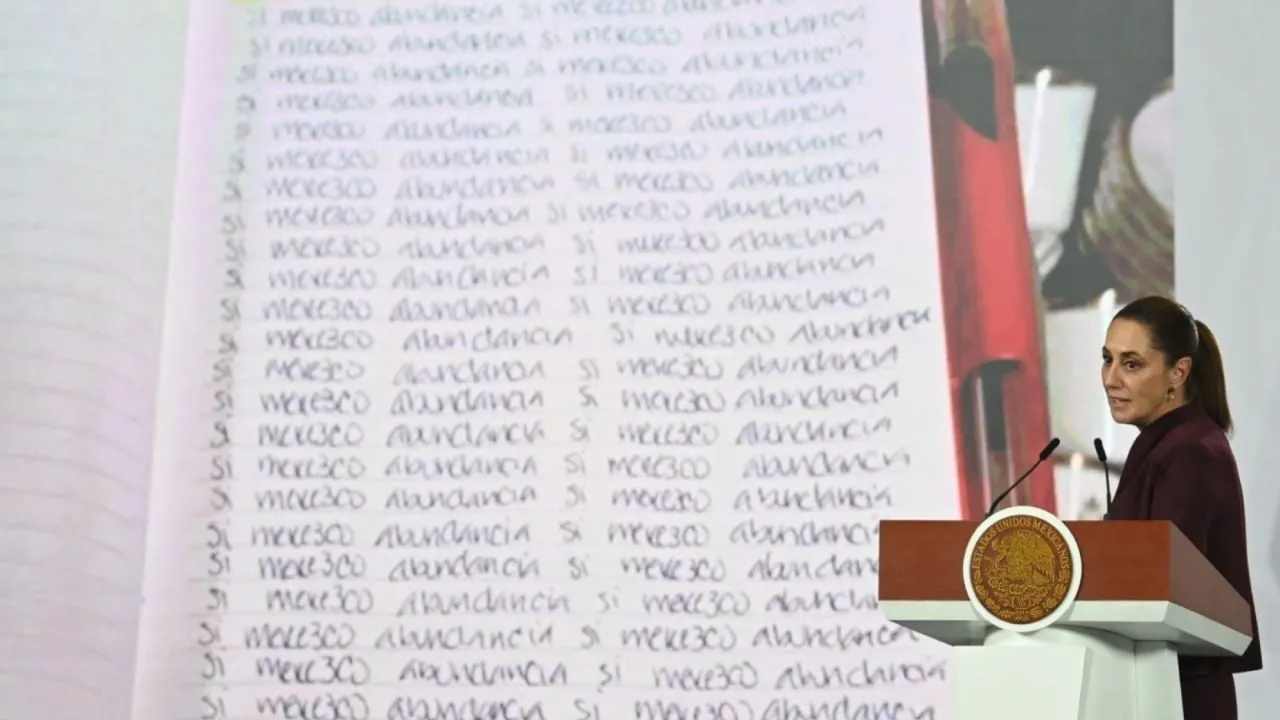 Si merezco abundancia Si merezco abundancia
Si merezco abundancia Si merezco abundancia
Si merezco abundancia Si merezco abundancia
Si merezco abundancia Si merezco abundancia
Si merezco abundancia Si merezco abundancia
Si merezco abundancia Si merezco abundancia
Si merezco abundancia Si merezco abundancia
Si merezco abundancia Si merezco abundancia
Si merezco abundancia Si merezco abundancia
Si merezco abundancia Si merezco abundancia
Si merezco abundancia Si merezco abundancia
Si merezco abundancia Si merezco abundancia
Si merezco abundancia Si merezco abundancia
Si merezco abundancia Si merezco abundancia
Si merezco abundancia Si merezco abundancia
Si merezco abundancia Si merezco abundancia
Si merezco abundancia Si merezco abundancia
Si merezco abundancia Si merezco abundanci
Si merezco abundancia Si merezco abundan
Si merezco abundancia Si merezco abundanc
Si merezco abundancia Si merezco abundancia
Si merezco abundancia Si merezco abundancia
Si merezco abundancia Si merezco abundancia
ESTADOS UNIDOS MEXICANOS